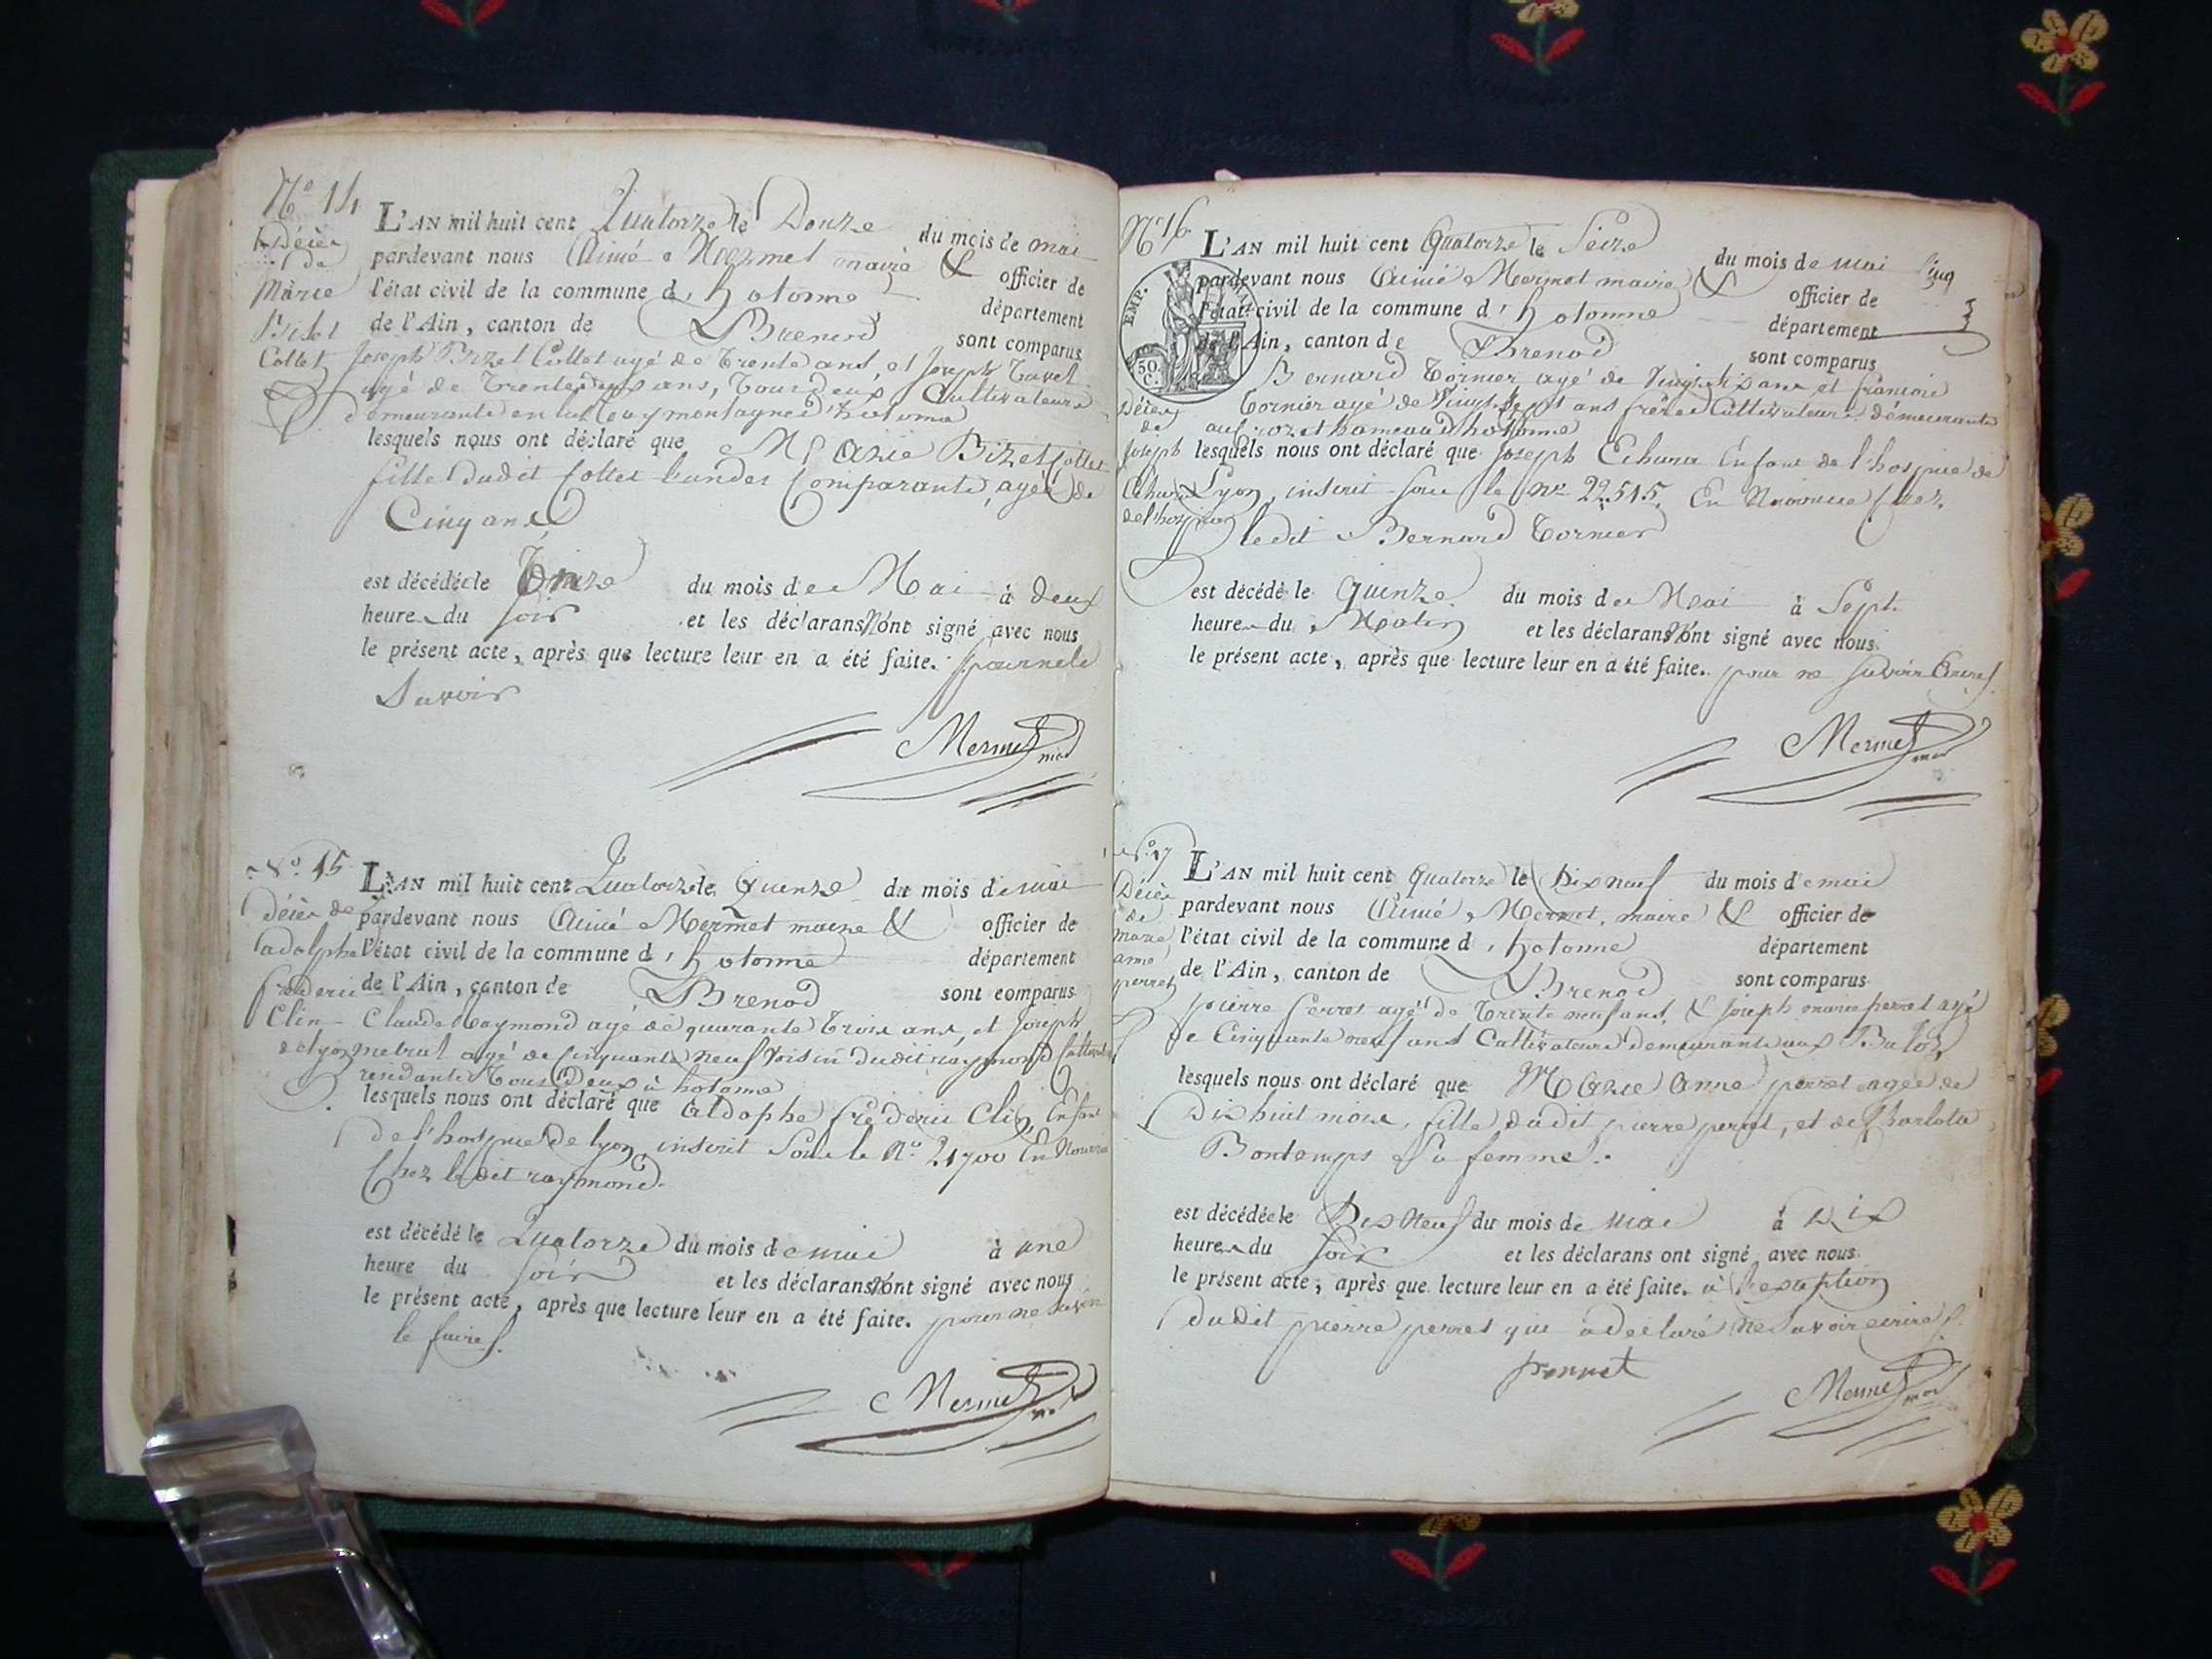 N° 14
Décès
de
Marie
Bizet
Collet
L'AN mil huit cent Quatorze le Douze du mois de mai
pardevant nous Aimé Mermet maire & officier de
l'état civil de la commune d'hotonne département
de l'Ain, canton de Brenod sont comparus
Joseph Bizet Collet agé de trente ans, et Joseph Tavel
agé de trente deux ans, tous deux Cultivateurs
demeurants en
lesquels nous ont déclaré que Marie Bizet Collet
fille dudit Collet l'un des Comparants, agée de
Cinq ans
est décédée le Onze du mois de Mai à deux
heures du soir et les déclarans n'ont signé avec nous
le présent acte, après que lecture leur en a été faite. pour ne le
Savoir
Mermet
N° 15
Décès de
adolphe
frederic
Clin
de lyon
L'AN mil huit cent Quatorze le Quinze du mois de mai
pardevant nous Aimé Mermet maire & officier de
l'état civil de la commune d'hotonne département
de l'Ain, canton de Brenod sont comparus
Claude Raymond agé de quarante trois ans, et Joseph
metral agé de Cinquante neuf voisin dudit raymond Cultivateurs
residants tous Deux à hotonne
lesquels nous ont déclaré que Aldophe frederic Clin, Enfant
de l'hospice de lyon, inscrit Sous le N° 21700 En Nourrice
Chez ledit raymond.
est décédé le Quatorze du mois de mai à une
heure du soir et les déclarans n'ont signé avec nous
le présent acte, après que lecture leur en a été faite. pour ne savoir
le faire.
Mermet
N° 16
EMP.
50
C.
Décès
de
Joseph
de l'hospice
L'AN mil huit cent Quatorze le Seize du mois de mai
pardevant nous Aimé Mermet maire & officier de
l'état civil de la commune d'hotonne département
de l'Ain, canton de Brenod sont comparus
Bernard Tornier agé de Vingt dix ans et francois
Tornier agé de Vingt Sept ans frères Cultivateurs demeurants
hameau d'hotonne
lesquels nous ont déclaré que Joseph Enfant de l'hospice de
Lyon, inscrit sous le N° 22,515, En Nourrice Chez
ledit Bernard Tornier
est décédé le Quinze du mois de Mai à Sept
heures du Matin et les déclarans n'ont signé avec nous
le présent acte, après que lecture leur en a été faite. pour ne savoir Ecrire.
Mermet
N° 17
Décès
de
marie
anne
perret
L'AN mil huit cent Quatorze le Dix neuf du mois de mai
pardevant nous Aimé Mermet, maire & officier de
l'état civil de la commune d'hotonne département
de l'Ain, canton de Brenod sont comparus
pierre perret agé de Trente neuf ans, & Joseph marie perret agé
de Cinquante neuf ans Cultivateurs demeurants aux
lesquels nous ont déclaré que Marie Anne perret agée de
Dix huit mois, fille dudit pierre perret, et de Charlote
Bontemps Sa femme.
est décédée le Dix Neuf du mois de mai à Dix
heures du Soir et les déclarans ont signé avec nous
le présent acte, après que lecture leur en a été faite. à l'exception
dudit pierre perret qui a declaré ne Savoir ecrire.
perret
Mermet